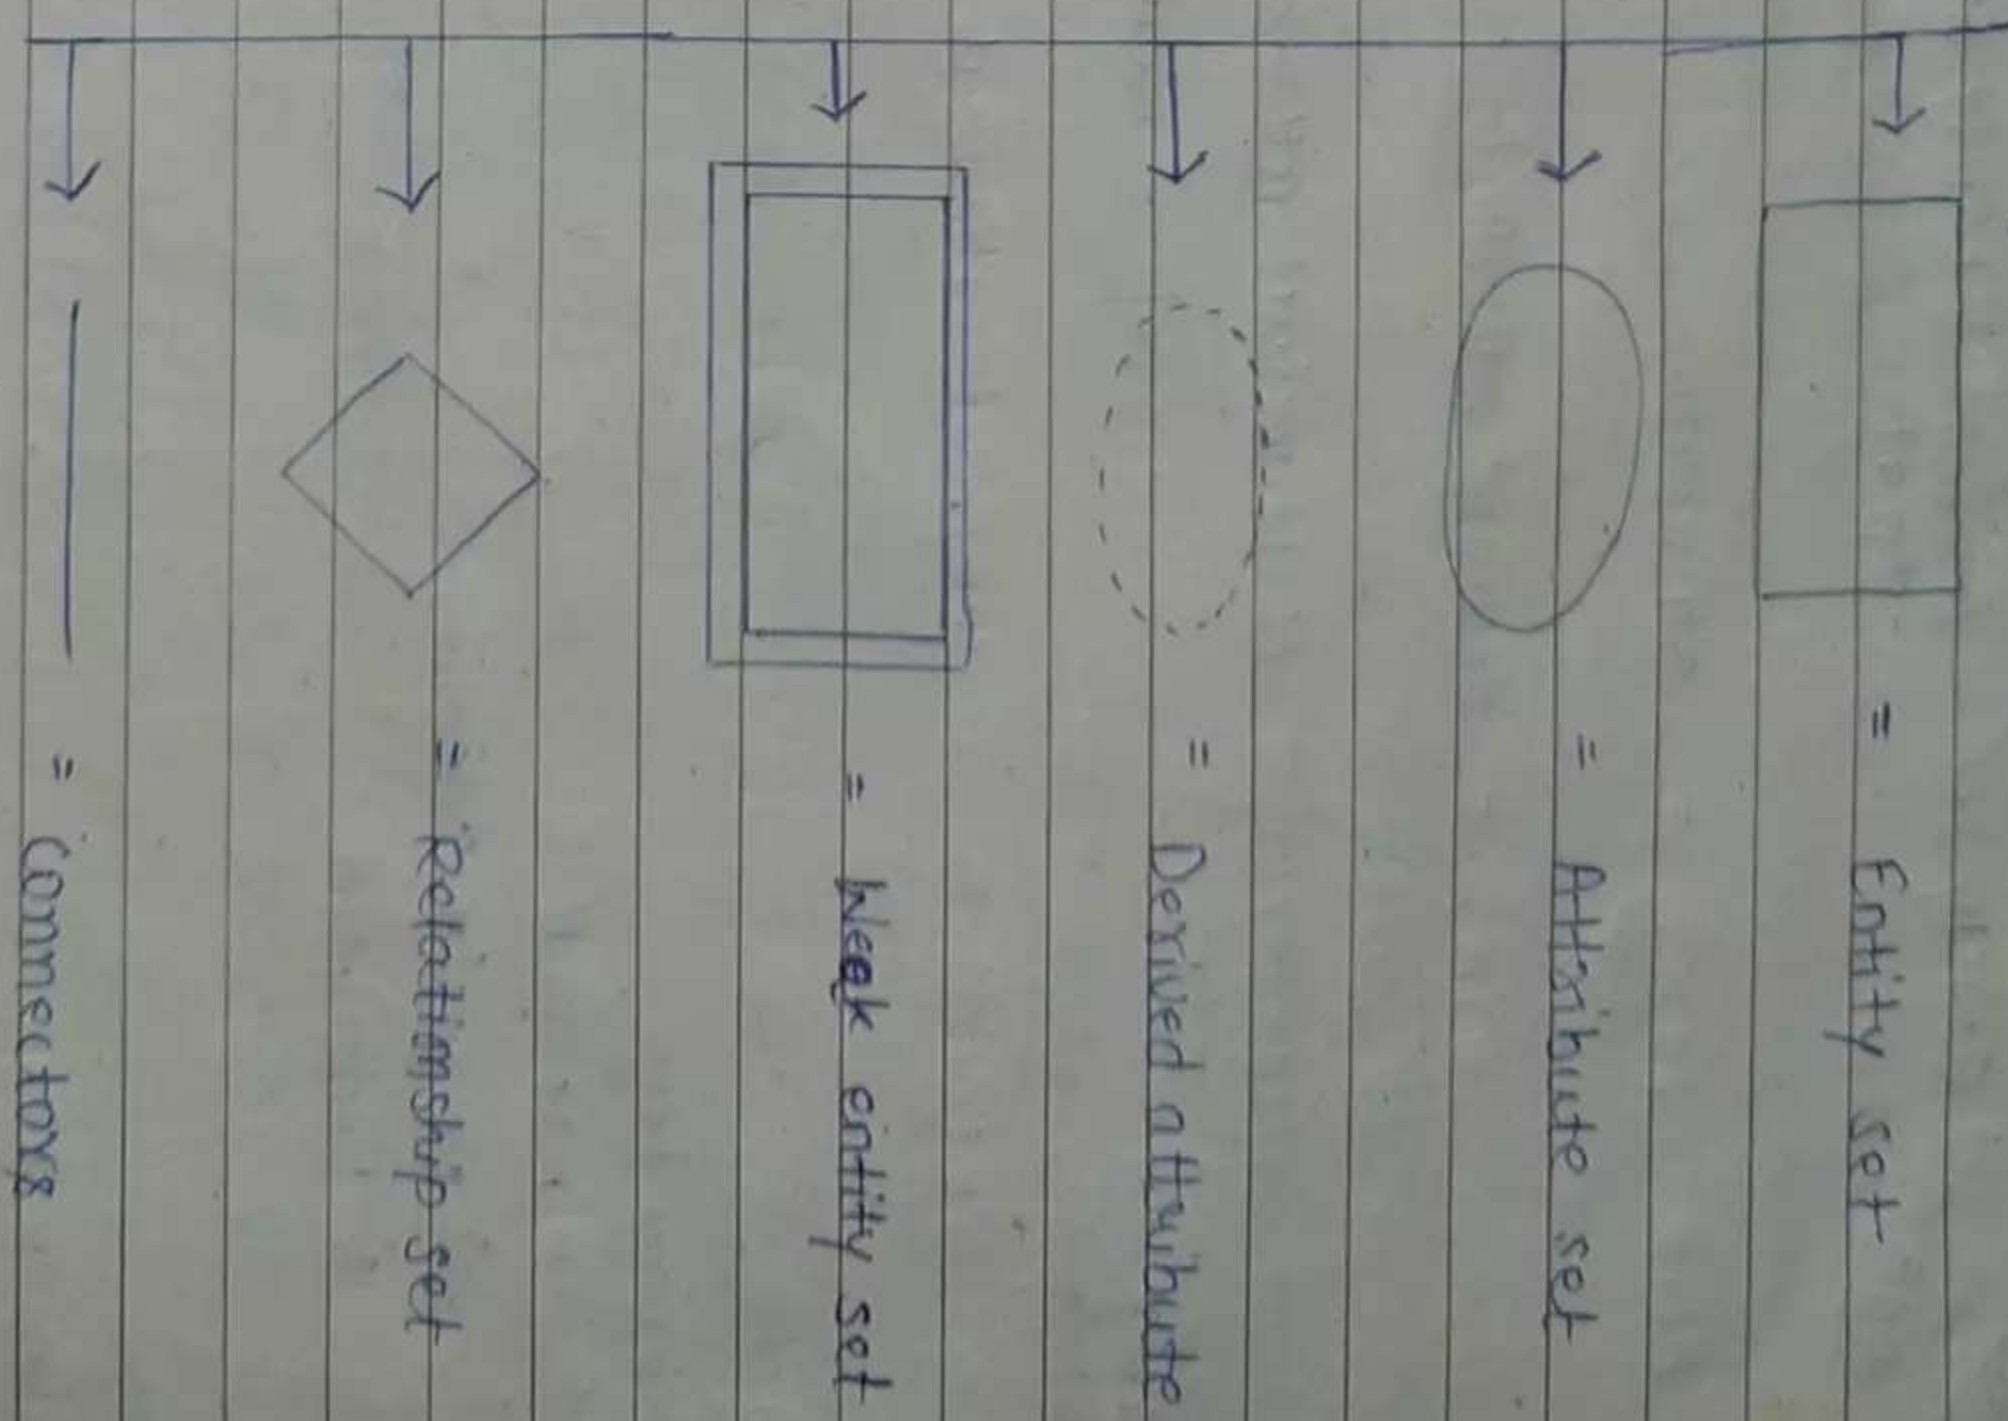 = Entity set
= Attribute set
= Derived attribute
= Weak entity set
= Relationship set
= Connectors